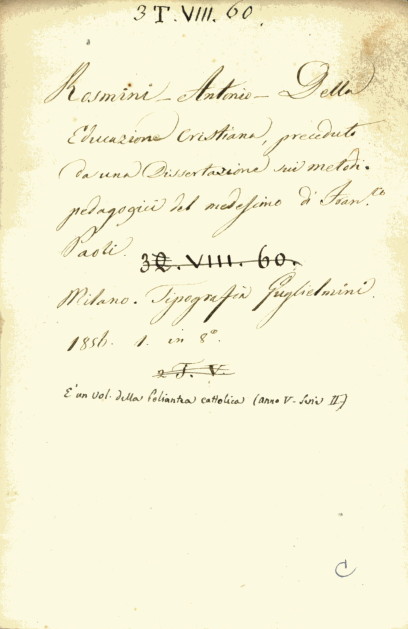 3 T. VIII. 60.
Rosmini - Antonio - Della
Educazione Cristiana, preceduto
da una Dissertazione sui metodi
pedagogici del medesimo di Fran.co
Paoli.
3Q. VIII. 60.
Milano. Tipografia Guglielmini.
1856. 1. in 8°.
2 T. V.
E' un vol. della Poliantea cattolica (anno V - Serie II.)
C